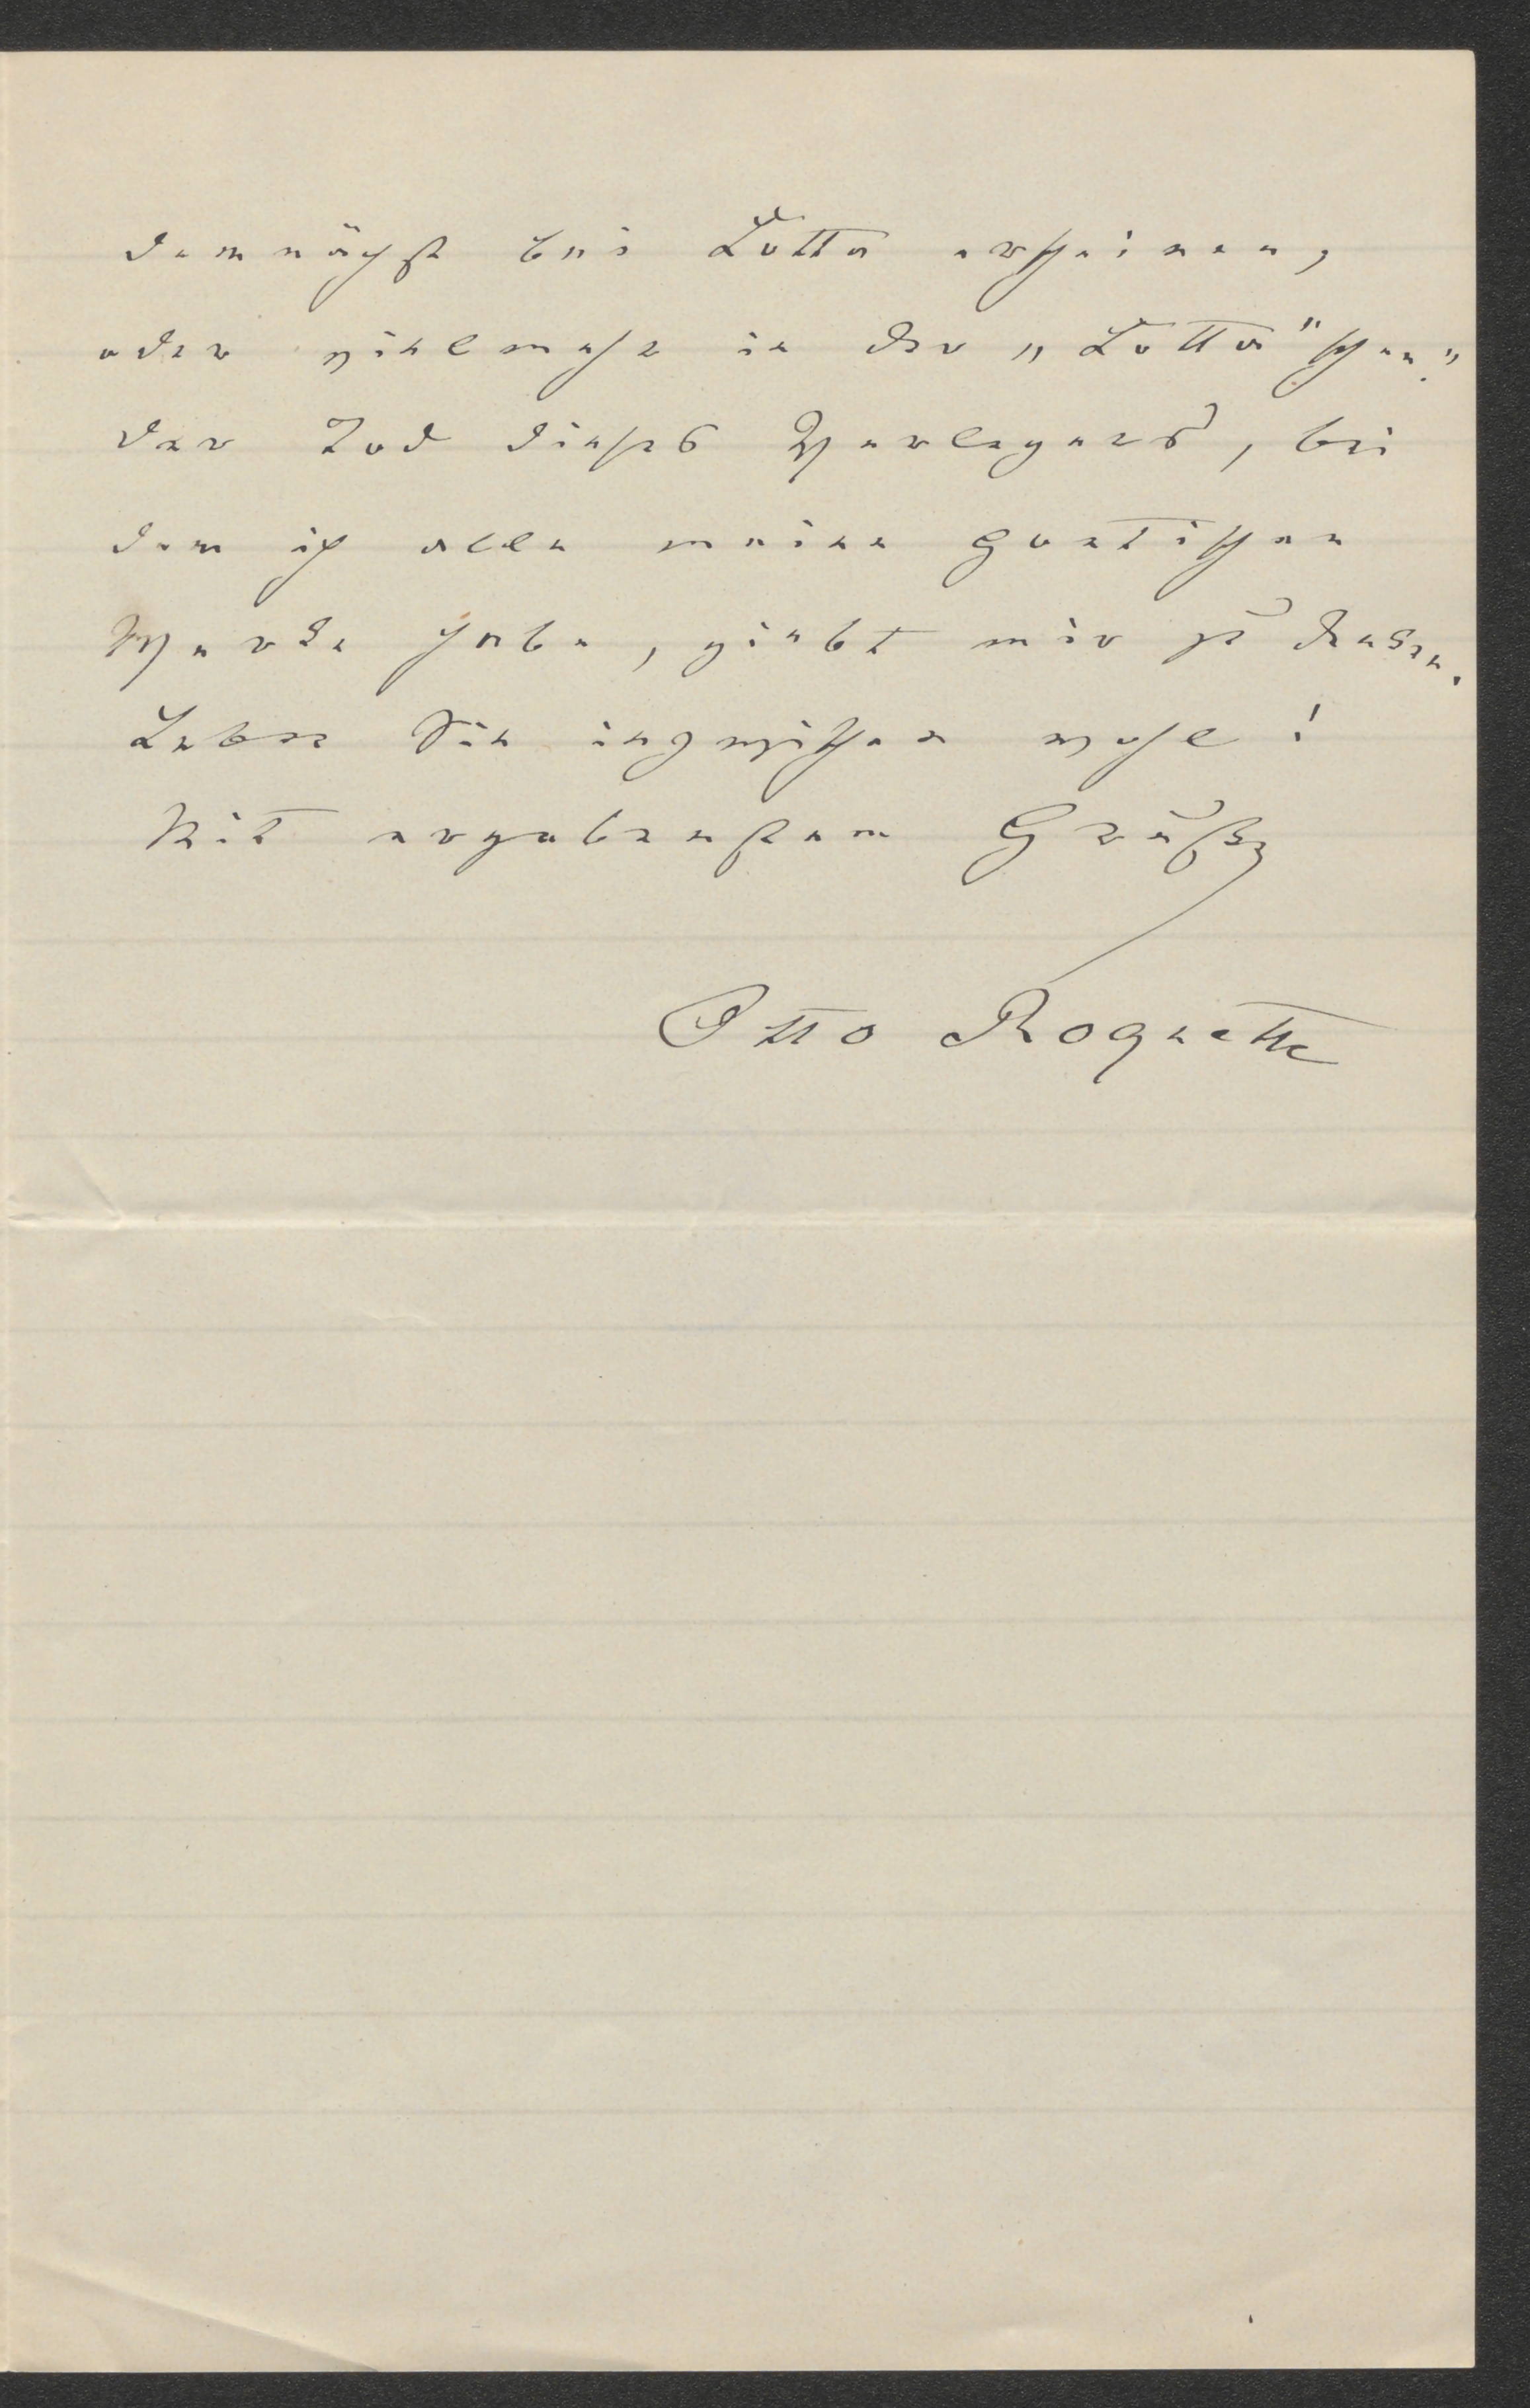 demnächst bei Cotta erscheinen,
oder vielmehr in der „Cotta"schen."
Der Tod dieses Verlegers, bei
dem ich alle meine poetischen
Werke habe, giebt mir zu denken.
Leben Sie inzwischen wohl!
Mit ergebenstem Gruße
Otto Roquette